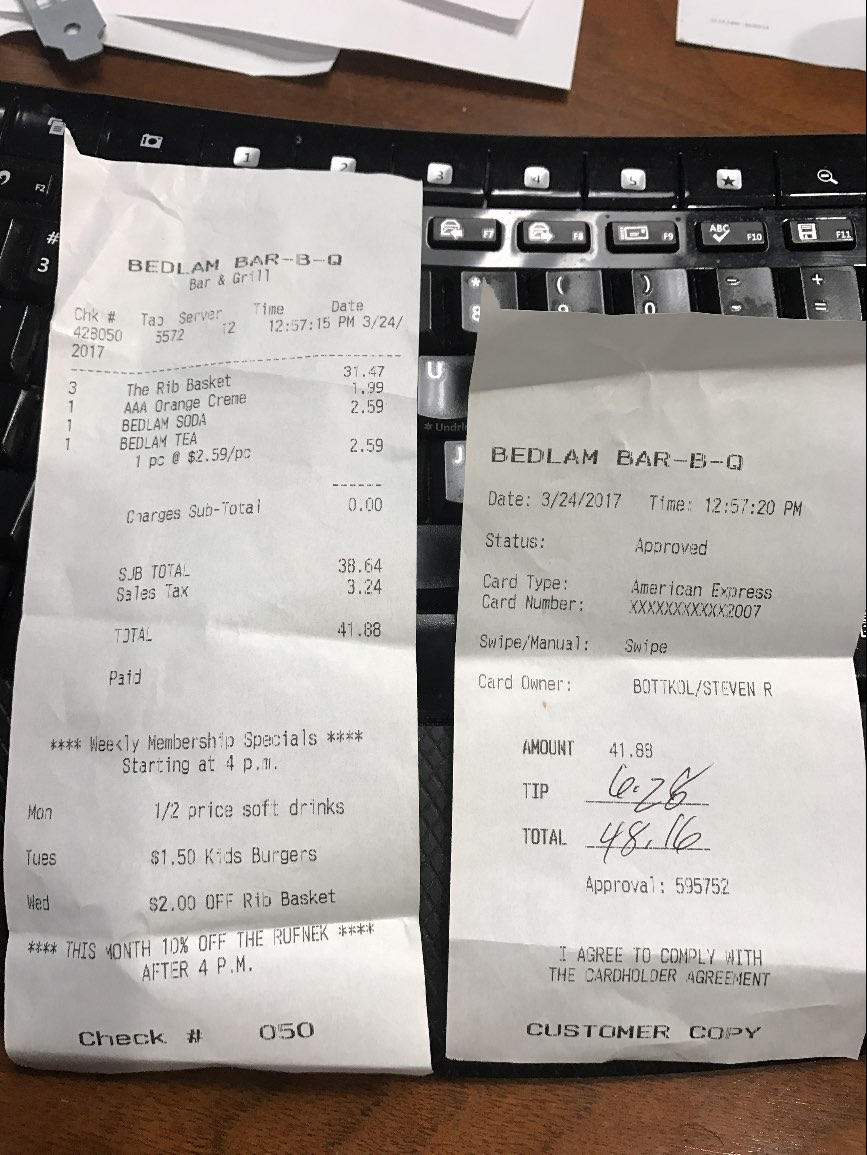 BEDLAM BAR-B-Q
Bar & Grill
Chk # Tab Server Time Date
428050 5572 12 12:57:15 PM 3/24/
2017
3 The Rib Basket 31.47
1 AAA Orange Creme 1.99
1 BEDLAM SODA 2.59
1 BEDLAM TEA
1 pc @ $2.59/pc 2.59
Charges Sub-Total 0.00
SUB TOTAL 38.64
Sales Tax 3.24
TOTAL 41.88
Paid
**** Weekly Membership Specials ****
Starting at 4 p.m.
Mon 1/2 price soft drinks
Tues $1.50 Kids Burgers
Wed $2.00 OFF Rib Basket
**** THIS MONTH 10% OFF THE RUFNEK ****
AFTER 4 P.M.
Check # 050
BEDLAM BAR-B-Q
Date: 3/24/2017 Time: 12:57:20 PM
Status: Approved
Card Type: American Express
Card Number: XXXXXXXXXXX2007
Swipe/Manual: Swipe
Card Owner: BOTTKOL/STEVEN R
AMOUNT 41.88
TIP 6.28
TOTAL 48.16
Approval: 595752
I AGREE TO COMPLY WITH
THE CARDHOLDER AGREEMENT
CUSTOMER COPY
1 2 3 4 5
F2 F7 F8 F9 ABC F10 F11
# 3 * 8 ( 9 ) 0 - + =
U
J